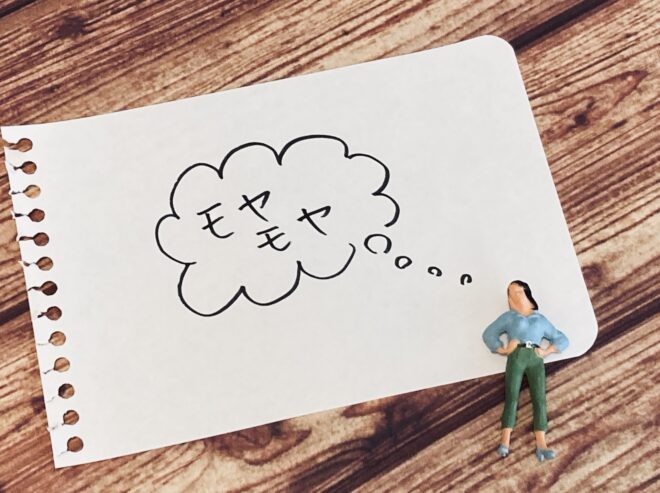 モヤ
モヤ